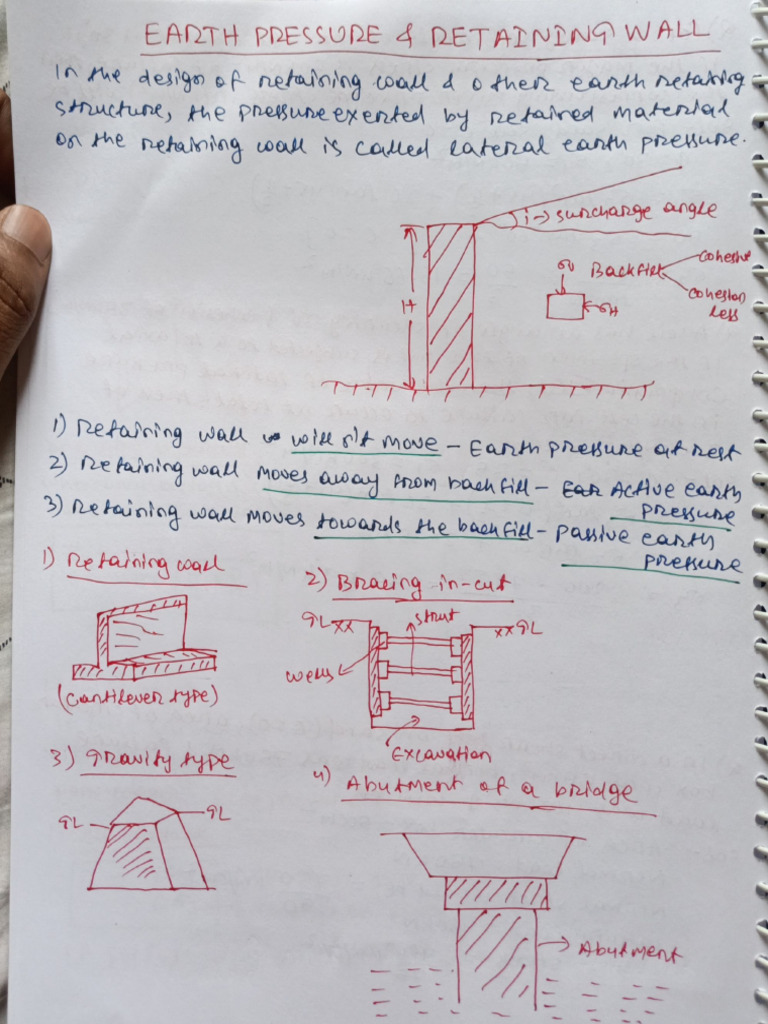 EARTH PRESSURE & RETAINING WALL
In the design of retaining wall & other earth retaining
structure, the pressure exerted by retained material
on the retaining wall is called lateral earth pressure.
i→ surcharge angle
H
σv
Backfill
cohesive
cohesion
less
σH
1) Retaining wall will n't move - Earth pressure at rest
2) Retaining wall moves away from backfill - Active earth
pressure
3) Retaining wall moves towards the backfill - Passive earth
pressure
1) Retaining wall
(Cantilever type)
2) Bracing-in-cut
GL xx
strut
xx GL
Excavation
3) Gravity type
GL
GL
4) Abutment of a bridge
→ Abutment